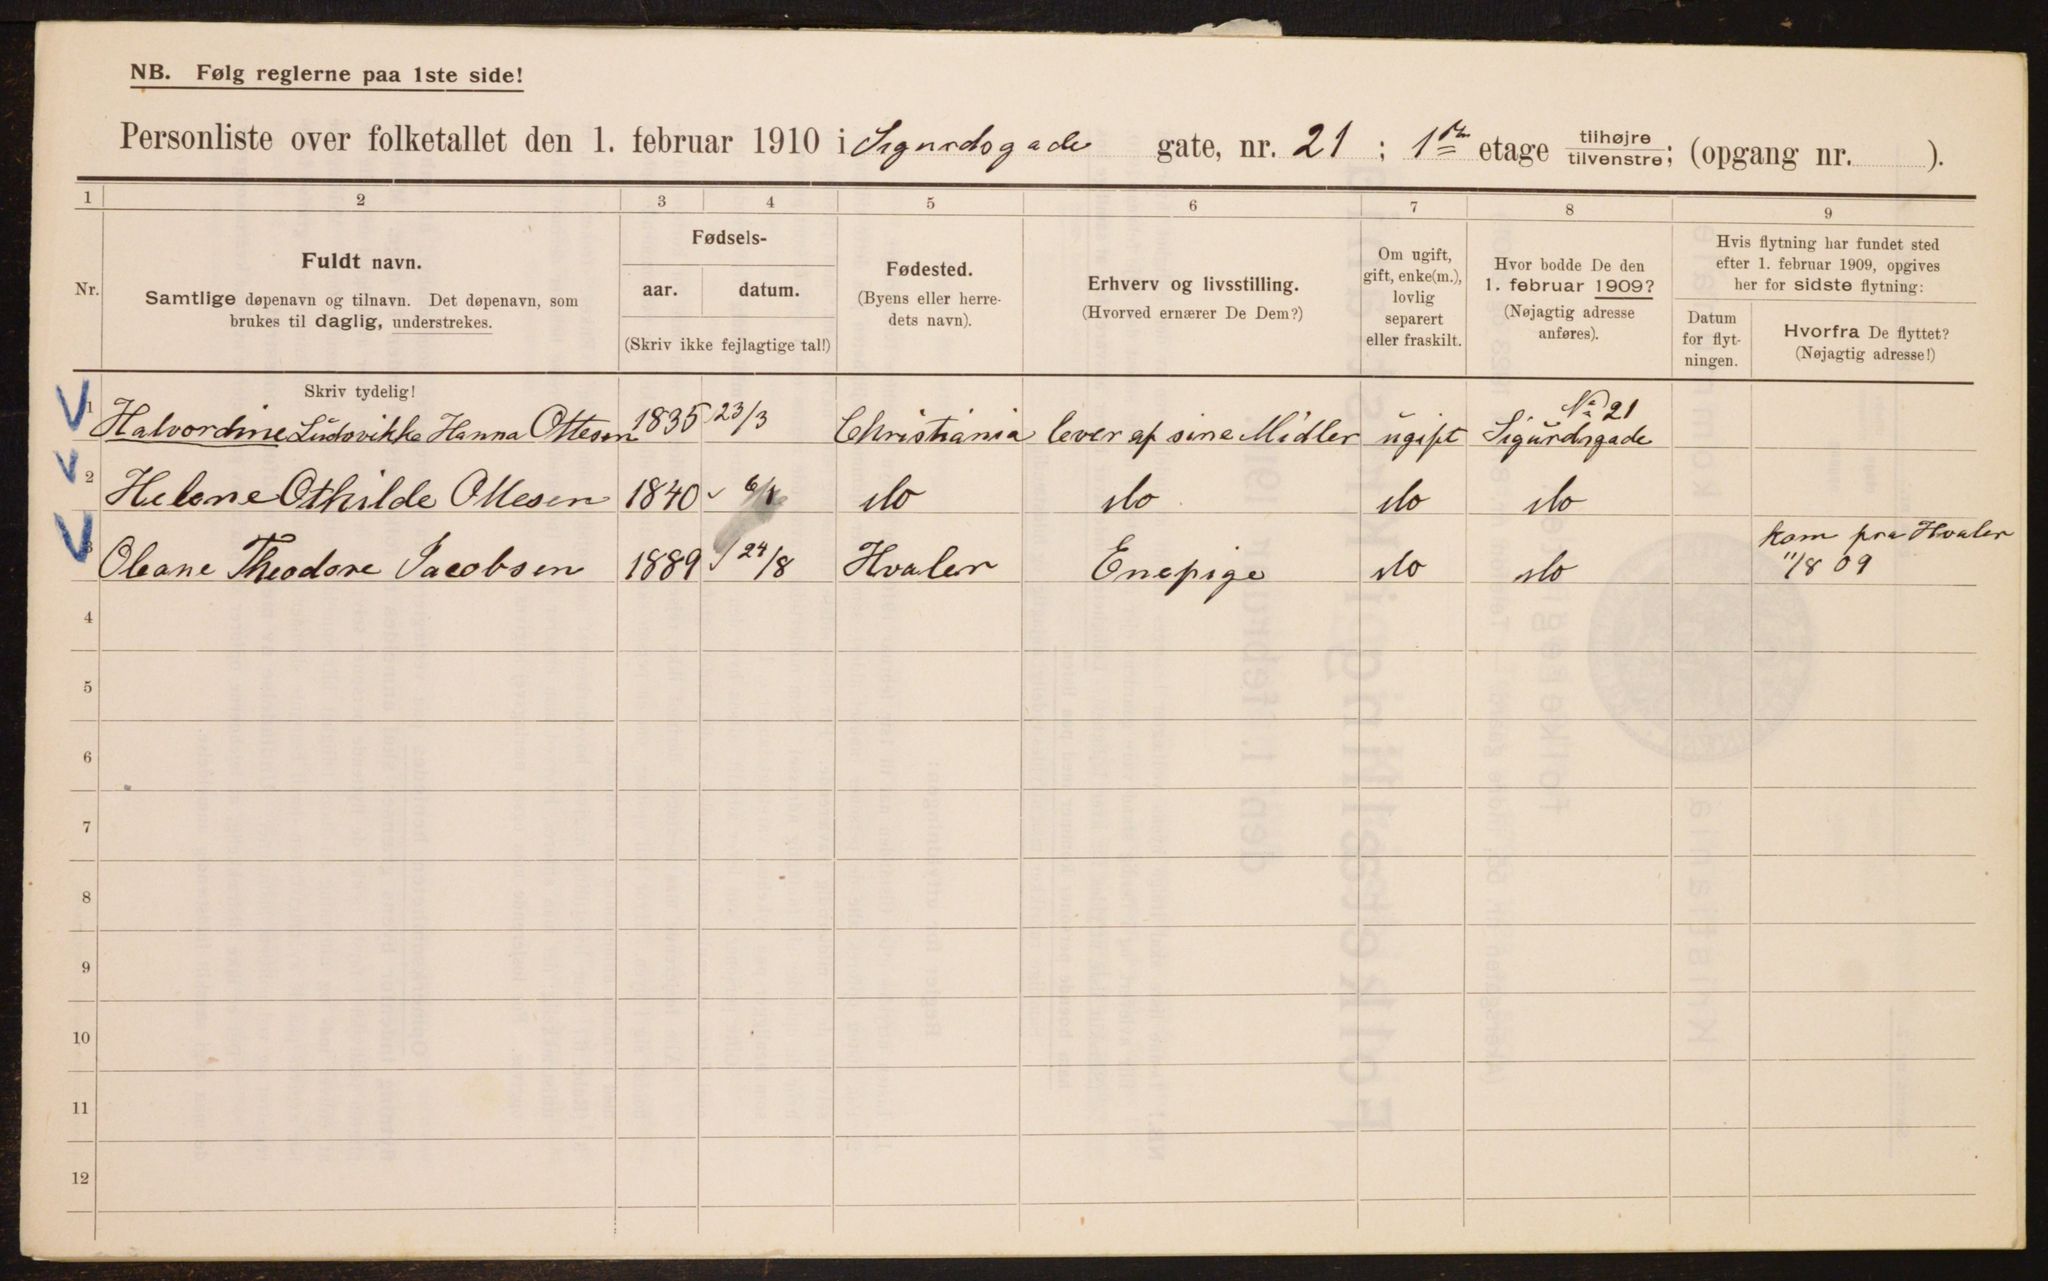 NB. Følg reglerne paa 1ste side!
Personliste over folketallet den 1. februar 1910 i Sigurdsgade gate, nr. 21 ; 1ste etage tilhøjre/tilvenstre; (opgang nr. ).
1 2 3 4 5 6 7 8 9
Nr.
Fuldt navn.
Samtlige døpenavn og tilnavn. Det døpenavn, som
brukes til daglig, understrekes.
Fødsels-
aar. datum.
(Skriv ikke fejlagtige tal!)
Fødested.
(Byens eller herre-
dets navn).
Erhverv og livsstilling.
(Hvorved ernærer De Dem?)
Om ugift,
gift, enke(m.),
lovlig
separert
eller fraskilt.
Hvor bodde De den
1. februar 1909?
(Nøjagtig adresse
anføres).
Hvis flytning har fundet sted
efter 1. februar 1909, opgives
her for sidste flytning:
Datum
for flyt-
ningen.
Hvorfra De flyttet?
(Nøjagtig adresse!)
Skriv tydelig!
No 21
1 Halvordine Ludovikke Hanna Ottesen 1835 23/3 Christiania lever af sine Midler ugift Sigurdsgade
2 Helene Othilde Ottesen 1840 6/1 do do do do
kom fra Hvaler
3 Oleane Theodore Jacobsen 1889 24/8 Hvaler Enepige do do 11/8 09
4
5
6
7
8
9
10
11
12